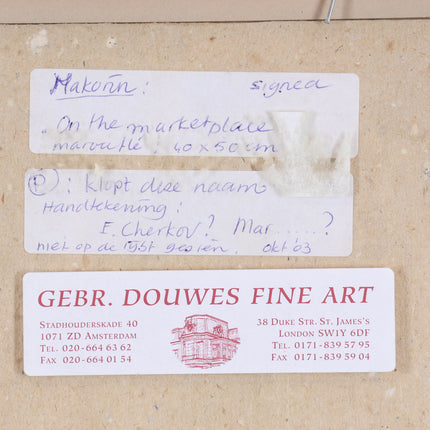 Makorin: signed
. On the marketplace
marouflé. 40 x 50 cm
(P): klopt deze naam
Handtekening:
E. Cherkov? Mar......?
niet op de lijst gezien. okt '03
GEBR. DOUWES FINE ART
STADHOUDERSKADE 40
1071 ZD AMSTERDAM
TEL. 020-664 63 62
FAX 020-664 01 54
38 DUKE STR. ST. JAMES'S
LONDON SW1Y 6DF
TEL. 0171-839 57 95
FAX 0171-839 59 04